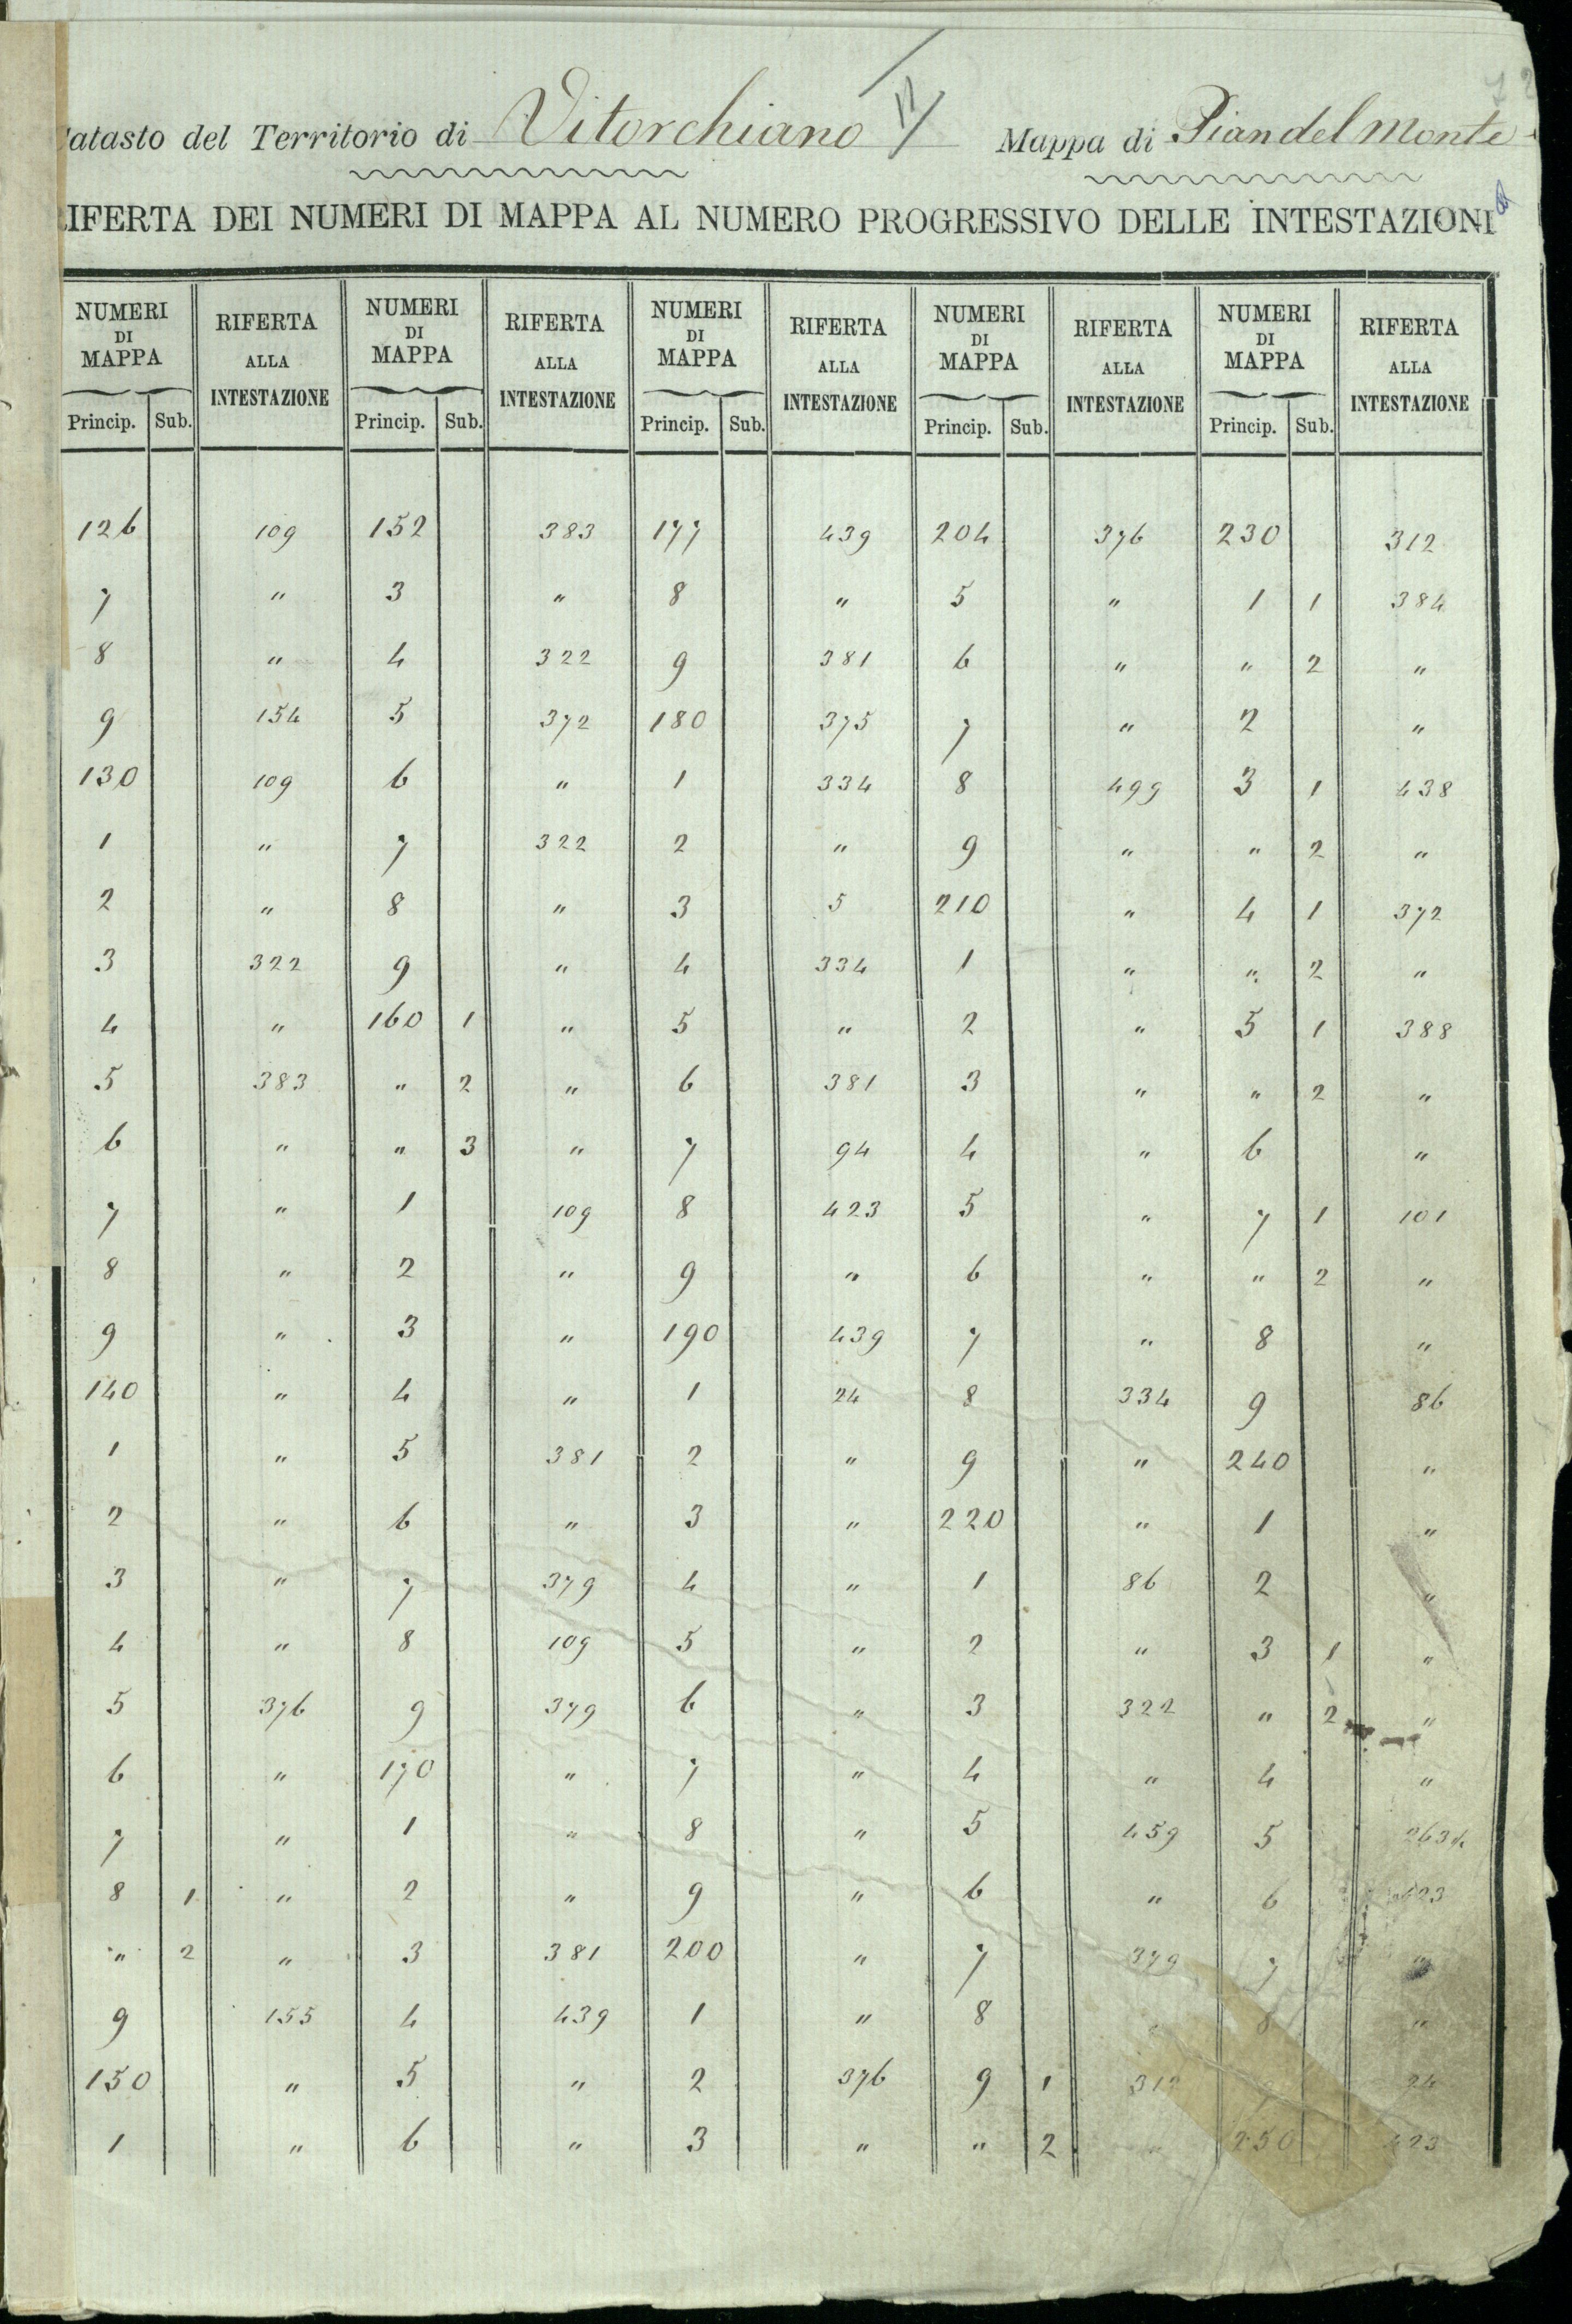 Catasto del Territorio di Vitorchiano Mappa di Pian del Monte
RIFERTA DEI NUMERI DI MAPPA AL NUMERO PROGRESSIVO DELLE INTESTAZIONI
NUMERI DI MAPPA RIFERTA ALLA INTESTAZIONE NUMERI DI MAPPA RIFERTA ALLA INTESTAZIONE NUMERI DI MAPPA RIFERTA ALLA INTESTAZIONE NUMERI DI MAPPA RIFERTA ALLA INTESTAZIONE NUMERI DI MAPPA RIFERTA ALLA INTESTAZIONE
Princip. Sub. Princip. Sub. Princip. Sub. Princip. Sub. Princip. Sub.
126 109 152 383 177 439 204 376 230 312
7 " 3 " 8 " 5 " 1 1 384
8 " 4 322 9 381 6 " " 2 "
9 154 5 372 180 375 7 " 2 "
130 109 6 " 1 334 8 499 3 1 438
1 " 7 322 2 " 9 " " 2 "
2 " 8 " 3 5 210 " 4 1 372
3 322 9 " 4 334 1 " " 2 "
4 " 160 1 " 5 " 2 " 5 1 388
5 383 " 2 " 6 381 3 " " 2 "
6 " " 3 " 7 94 4 " 6 "
7 " 1 109 8 423 5 " 7 1 101
8 " 2 " 9 " 6 " " 2 "
9 " 3 " 190 439 7 " 8 "
140 " 4 " 1 24 8 334 9 86
1 " 5 381 2 " 9 " 240 "
2 " 6 " 3 " 220 " 1 "
3 " 7 379 4 " 1 86 2 "
4 " 8 109 5 " 2 " 3 1 "
5 376 9 379 6 " 3 322 " 2 "
6 " 170 " 7 " 4 " 4 "
7 " 1 " 8 " 5 459 5
8 1 " 2 " 9 " 6 " 6 423
" 2 " 3 381 200 " 7 379 7 "
9 155 4 439 1 " 8 " 8 "
150 " 5 " 2 376 9 1 312 24
1 " 6 " 3 " " 2 " 250 423